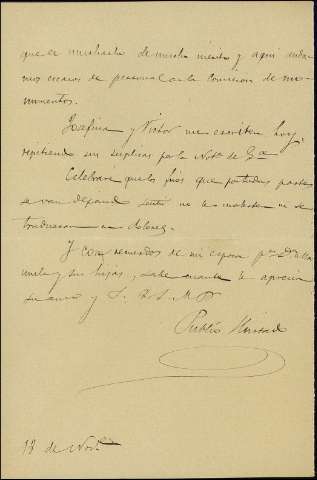 que es muchacho de mucho mérito y aquí anda-
mos escasos de personal en la Comision de mo-
numentos.
Josefina y Victor me escriben hoy,
repitiendo sus súplicas por la Not.ª de G.ª
Celebrare que los frios que por todas partes
se van dejando sentir no le molesten ni se
traduzcan en dolores.
Y con recuerdos de mi esposa p.ª D.ª Ma-
nuela y sus hijas, sabe cuanto le aprecia
su amo y S. Q. S. M. B.
Publio Hurtado
13 de Nov.